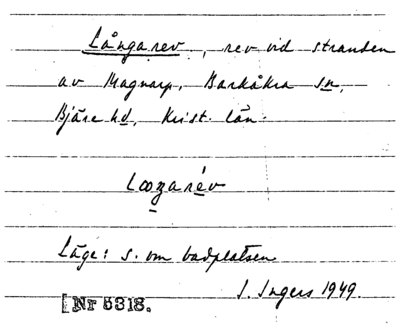 Långarev, rev vid stranden
av Magnarp, Barkåkra sn,
Bjäre hd, Krist. län.
Läge: s. om badplatsen
I. Ingers 1949.
[Nr 5318.